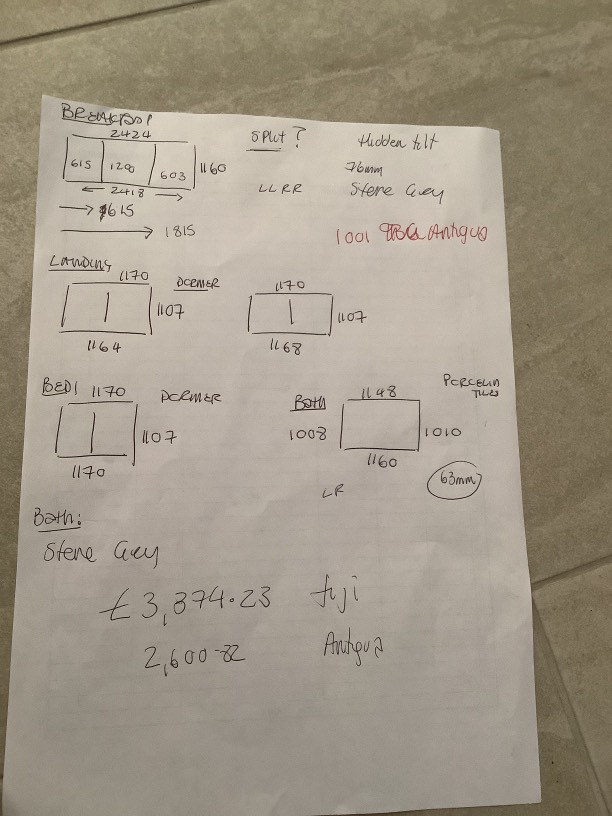 2424
SPLIT ?
Hidden tilt
615 1200 603 1160
76mm
2418
LLRR
Stone Grey
615
1815
1001 Antigua
LANDING
1170 DORMER 1170
1107 1107
1164 1168
BED1 1170 DORMER
Bath 1148 PORCELIN TILES
1107
1008 1010
1170
1160
63mm
LR
Bath:
Stone Grey
£3,374.23 fiji
2,600-82 Antigua